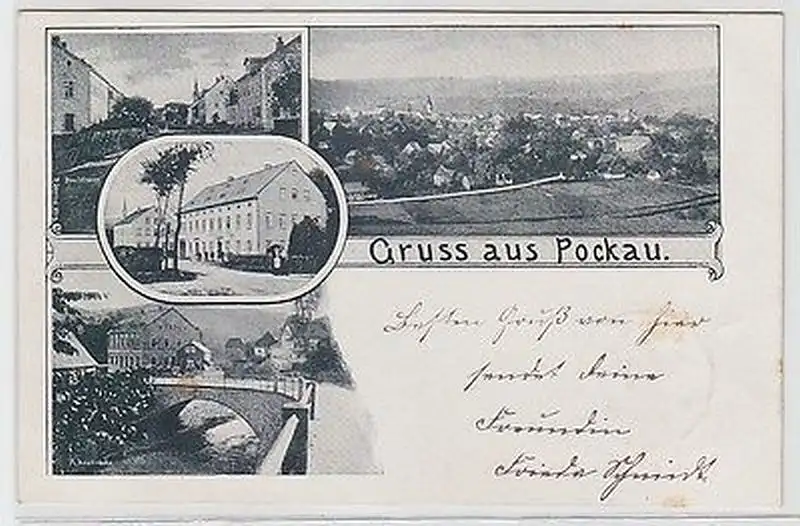 Gruss aus Pockau.
Besten Gruß von hier
sendet Deine
Freundin
Frieda Schmidt.